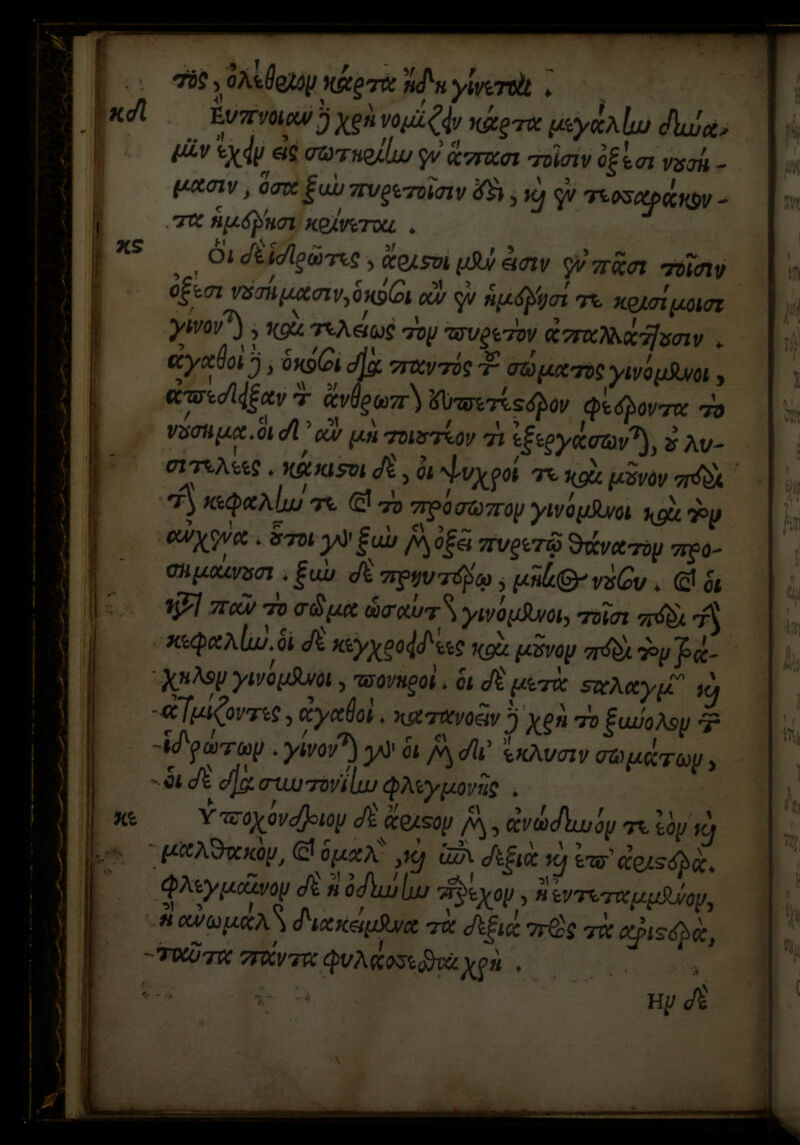 τὸς, ὀλέθριον κάρτα ἤδη γίνεται .
κδ Εὔπνοιαν δὲ χρὴ νομίζειν κάρτα μεγάλην δύνα-
μιν ἔχειν εἰς σωτηρίην ἐν ἅπασι τοῖσιν ὀξέσι νοσή-
μασιν, ὅσα ξὺν πυρετοῖσιν ἐστι, καὶ ἐν τεσσαράκον-
τα ἡμέρῃσι κρίνεται .
κς Οἱ δὲ ἱδρῶτες, ἄριστοι μέν εἰσιν ἐν πᾶσι τοῖσιν
ὀξέσι νοσήμασιν, ὁκόσοι ἂν ἐν ἡμέρῃσί τε κρισίμοισι
γίνονται, καὶ τελείως τὸν πυρετὸν ἀπαλλάττουσιν .
ἀγαθοὶ δὲ, ὁκόσοι διὰ παντὸς τοῦ σώματος γινόμενοι,
ἀπέδειξαν τὸν ἄνθρωπον εὐπετέστερον φέροντα τὸ
νόσημα. οἱ δ' ἂν μὴ τοιουτέον τι ἐξεργάσωνται, οὐ λυ-
σιτελέες . κάκιστοι δὲ, οἱ ψυχροί τε καὶ μοῦνον περὶ
τὴν κεφαλήν τε καὶ τὸ πρόσωπον γινόμενοι καὶ τὸν
αὐχένα . οὗτοι γὰρ ξὺν μὲν ὀξέι πυρετῷ θάνατον προ-
σημαίνουσι . ξὺν δὲ πρηυτέρῳ, μῆκος νούσου . καὶ οἱ
κατὰ πᾶν τὸ σῶμα ὡσαύτως γινόμενοι, τοῖσι περὶ τὴν
κεφαλήν. οἱ δὲ κεγχροώδεες καὶ μοῦνον περὶ τὸν τρά-
χηλον γινόμενοι, πονηροί . οἱ δὲ μετὰ σταλαγμῶν καὶ
ἀτμίζοντες, ἀγαθοί . κατανοεῖν δὲ χρὴ τὸ ξύνολον τῶν
ἱδρώτων . γίνονται γὰρ οἱ μὲν δι' ἔκλυσιν σωμάτων,
οἱ δὲ διὰ συντονίην φλεγμονῆς .
κε Ὑποχόνδριον δὲ ἄριστον μὲν, ἀνώδυνόν τε ἐὸν καὶ
μαλθακὸν, καὶ ὁμαλὸν, καὶ ἐπὶ δεξιὰ καὶ ἐπ' ἀριστερὰ.
φλεγμαῖνον δὲ ἢ ὀδύνην παρέχον, ἢ ἐντεταμμένον,
ἢ ἀνωμάλως διακείμενα τὰ δεξιὰ πρὸς τὰ ἀριστερὰ,
ταῦτα πάντα φυλάσσεσθαι χρὴ .
Ἢν δὲ